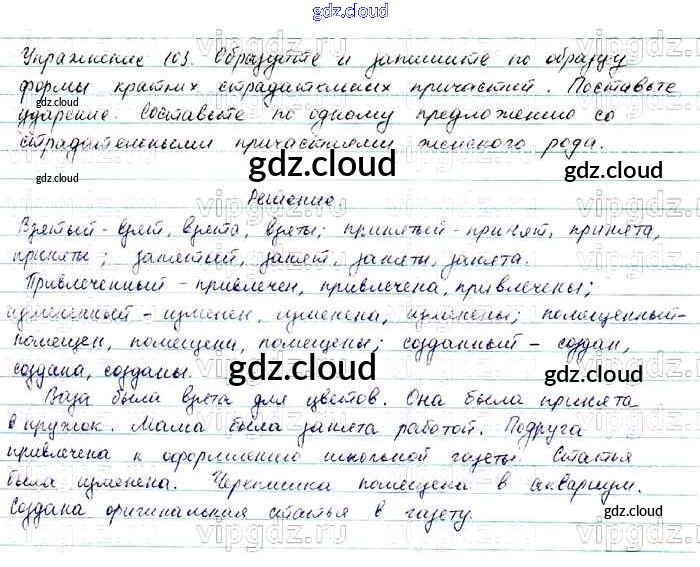 gdz.cloud
Упражнение 103. Образуйте и запишите по образцу
формы кратких страдательных причастий. Поставьте
gdz.cloud
ударение. Составьте по одному предложению со
gdz.cloud
страдательными причастиями женского рода.
gdz.cloud gdz.cloud
Решение
Взятый - взят, взята, взяты; принятый - принят, принята,
приняты; занятый, занят, заняты, занята.
Привлеченный - привлечен, привлечена, привлечены;
измененный - изменен, изменена, изменены; помещенный-
помещен, помещена, помещены; созданный - создан,
gdz.cloud gdz.cloud
создана, созданы.
Ваза была взята для цветов. Она была принята
в кружок. Мама была занята работой. Подруга
привлечена к оформлению школьной газеты. Статья
была изменена. Черепашка помещена в аквариум.
Создана оригинальная статья в газету.